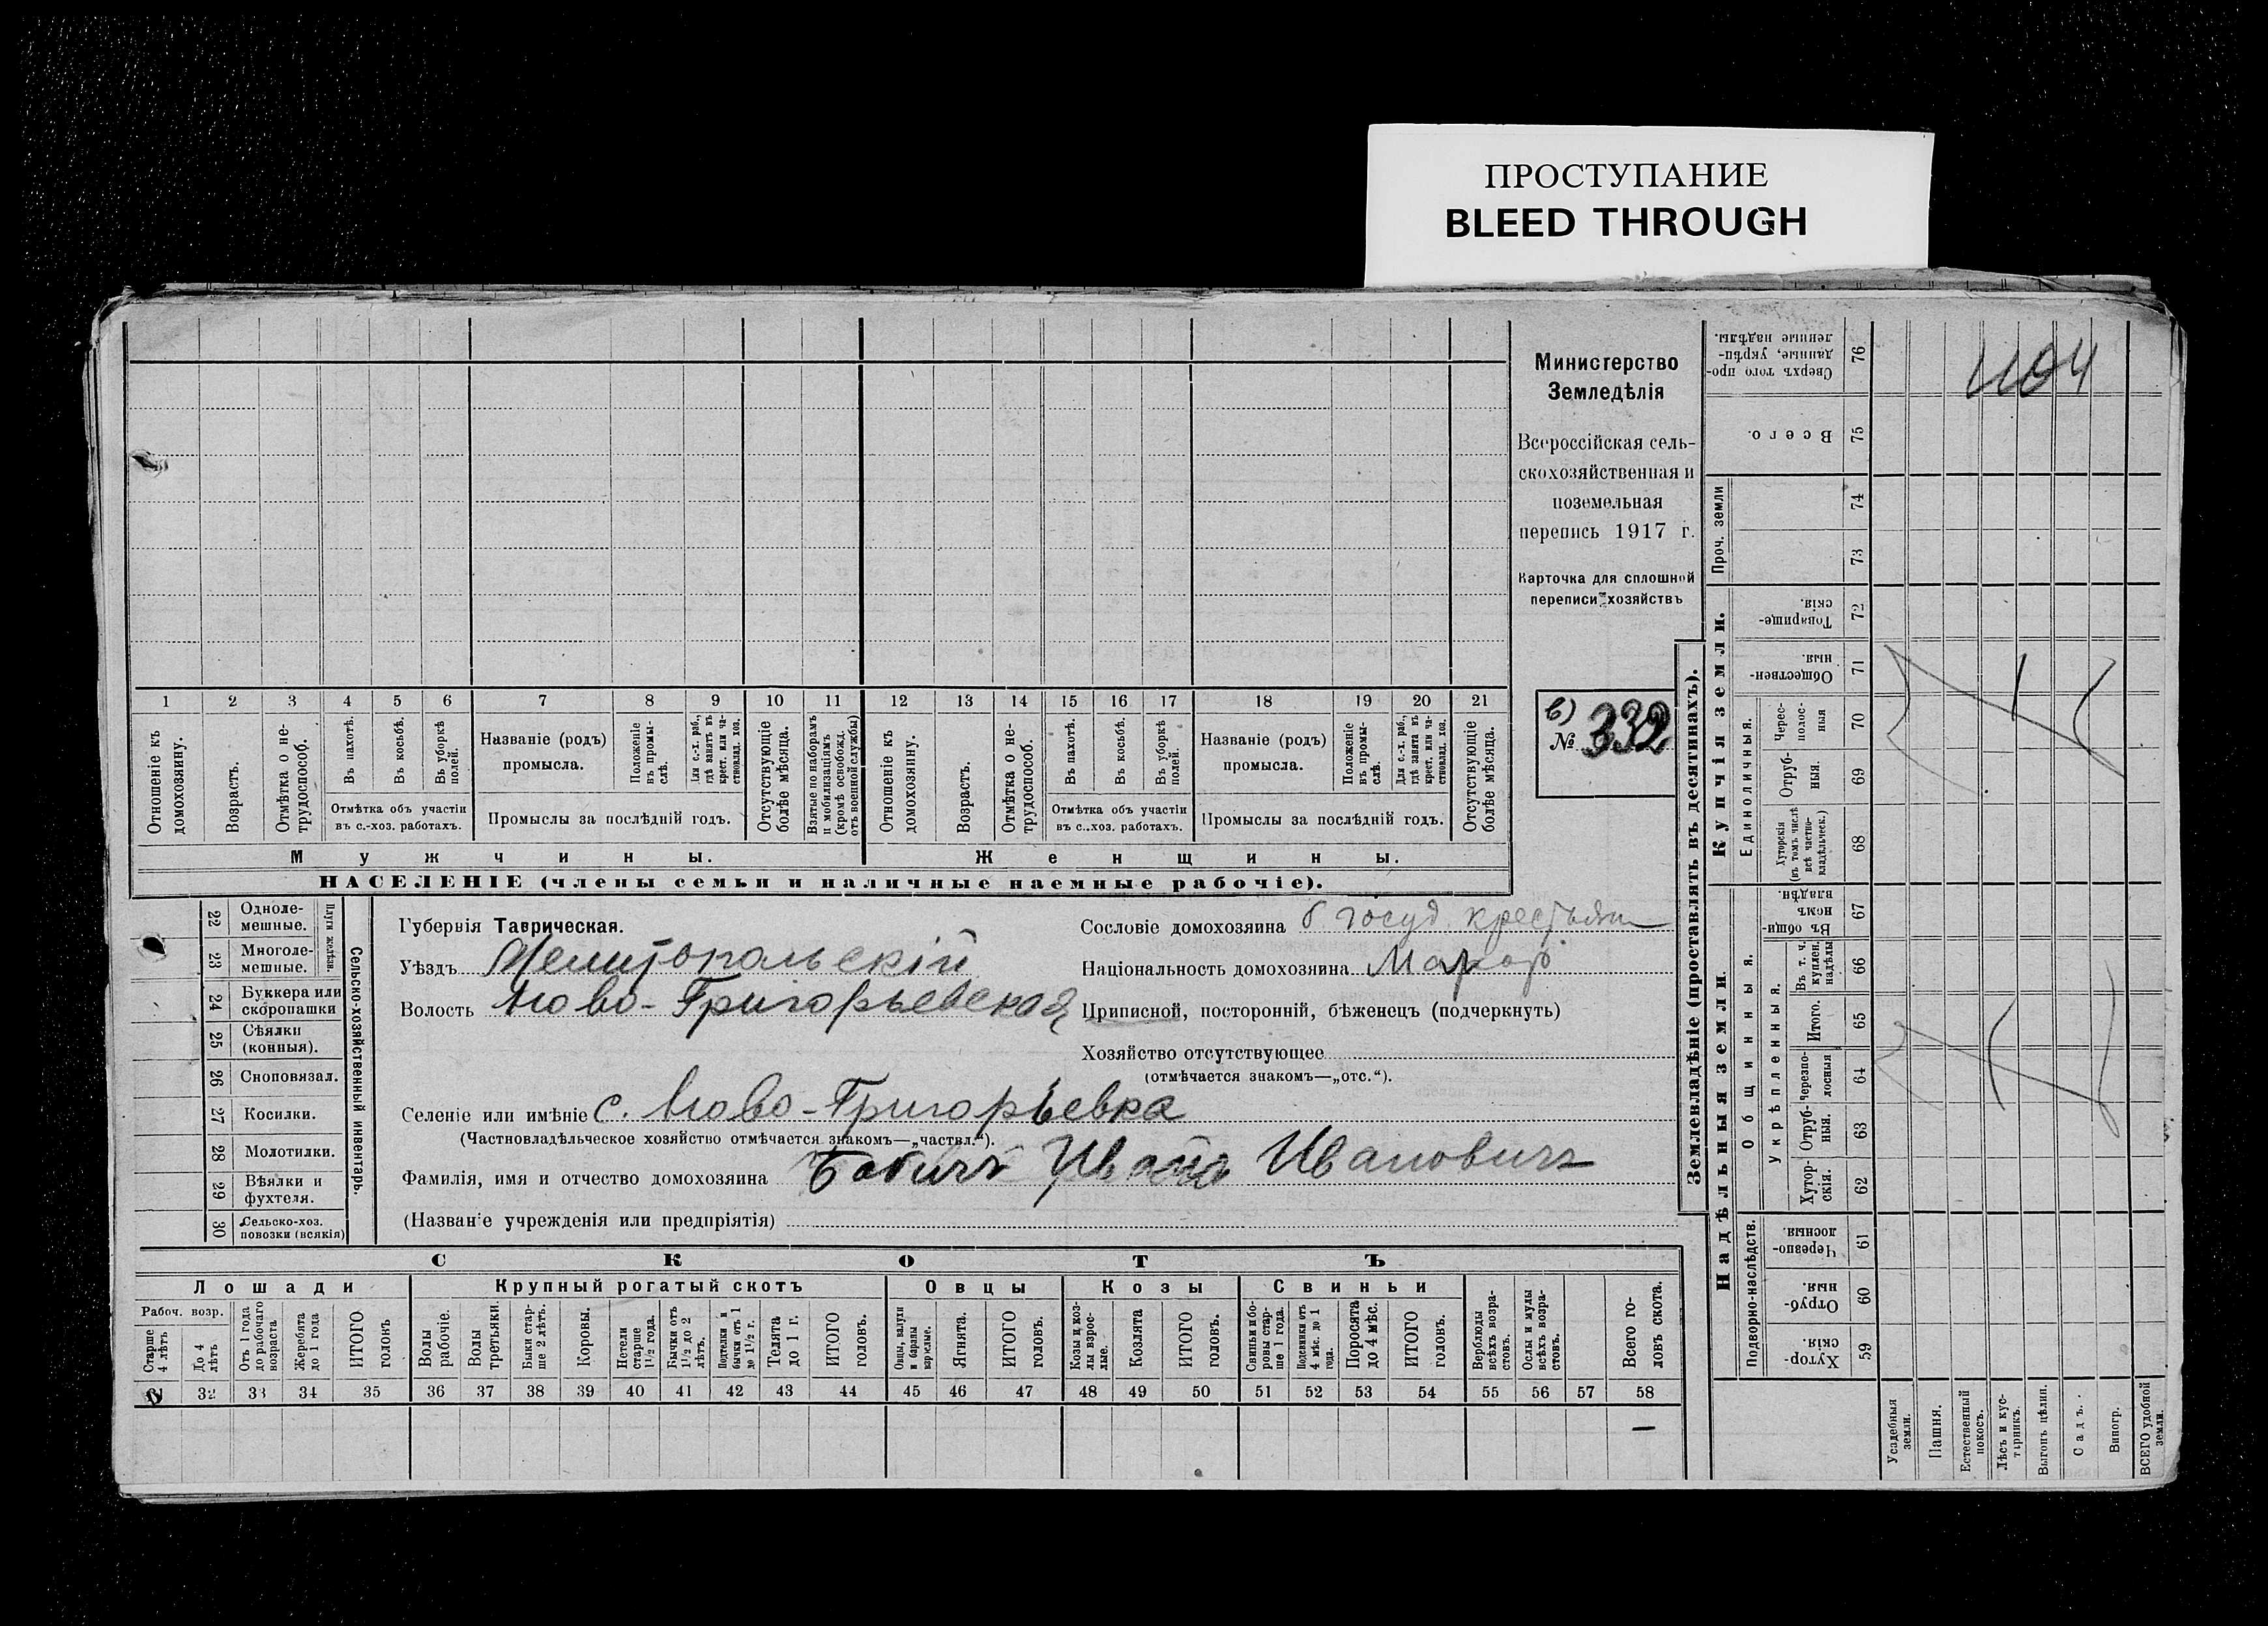 ПРОСТУПАНИЕ
BLEED THROUGH
Министерство
Земледѣлія
Всероссійская сель-
скохозяйственная и
поземельная
перепись 1917 г.
Карточка для сплошной
переписи хозяйствъ
в)
№ 332
1104
1 2 3 4 5 6 7 8 9 10 11 12 13 14 15 16 17 18 19 20 21
Отношеніе къ домохозяину.
Возрастъ.
Отмѣтка о не-трудоспособ.
Въ пахотѣ.
Въ косьбѣ.
Въ уборкѣ полей.
Отмѣтка объ участіи
въ с.-хоз. работахъ.
Названіе (родъ)
промысла.
Положеніе въ промы-слѣ.
Для с.-х. раб., гдѣ занятъ въ крест. или ча-стновлад. хоз.
Промыслы за послѣдній годъ.
Отсутствующіе болѣе мѣсяца.
Взятые по наборамъ и мобилизаціямъ (кромѣ освобожд. отъ военной службы)
Отношеніе къ домохозяину.
Возрастъ.
Отмѣтка о не-трудоспособ.
Въ пахотѣ.
Въ косьбѣ.
Въ уборкѣ полей.
Отмѣтка объ участіи
въ с..хоз. работахъ.
Названіе (родъ)
промысла.
Положеніе въ промы-слѣ.
Для с.-х. раб., гдѣ занята въ крест. или ча-стновлад. хоз.
Промыслы за послѣдній годъ.
Отсутствующіе болѣе мѣсяца.
Мужчины.
Женщины.
НАСЕЛЕНІЕ (члены семьи и наличные наемные рабочіе).
Сельско-хозяйственный инвентарь.
Плуги желѣзн.
22 Одноле-мешные.
23 Многоле-мешные.
24 Буккера или скоропашки
25 Сѣялки (конныя).
26 Сноповязал.
27 Косилки.
28 Молотилки.
29 Вѣялки и фухтеля.
30 Сельско-хоз. повозки (всякія)
Губернія Таврическая.
Уѣздъ Мелитопольскій
Волость Ново-Григорьевская
Селеніе или имѣніе с. Ново-Григорьевка
(Частновладѣльческое хозяйство отмѣчается знакомъ—„частвл.“).
Фамилія, имя и отчество домохозяина Бабичъ Иванъ Ивановичъ
(Названіе учрежденія или предпріятія)
Сословіе домохозяина б госуд. крестьян
Національность домохозяина Малор
Приписной, посторонній, бѣженецъ (подчеркнуть)
Хозяйство отсутствующее
(отмѣчается знакомъ—„отс.“).
СКОТЪ
Лошади
Крупный рогатый скотъ
Овцы
Козы
Свиньи
Рабоч. возр.
Старше 4 лѣтъ
До 4 лѣтъ
Отъ 1 года до рабочаго возраста
Жеребята до 1 года
ИТОГО головъ
Волы рабочіе.
Волы третьяки.
Быки стар-ше 2 лѣтъ.
Коровы.
Нетели старше 1½ года.
Бычки отъ 1½ до 2 лѣтъ.
Подтелки и бычки отъ 1 до 1½ г.
Телята до 1 г.
ИТОГО головъ.
Овцы, валухи и бараны взрослые.
Ягнята.
ИТОГО головъ.
Козы и коз-лы взрос-лые.
Козлята
ИТОГО головъ.
Свиньи и бо-ровы стар-ше 1 года.
Подсвинки отъ 4 мѣс. до 1 года.
Поросята до 4 мѣс.
ИТОГО головъ.
Верблюды всѣхъ возра-стовъ.
Ослы и мулы всѣхъ возра-стовъ.
Всего го-ловъ скота.
32 33 34 35 36 37 38 39 40 41 42 43 44 45 46 47 48 49 50 51 52 53 54 55 56 57 58
—
Землевладѣніе (проставлять въ десятинахъ).
Купчія земли.
Надѣльныя земли.
Сверхъ того про-данные, укрѣп-ленные надѣлы. 76
Всего. 75
Проч. земли
74
73
Товарище-скія. 72
Обществен-ныя. 71
Единоличныя.
Черес-полос-ныя 70
Отруб-ныя. 69
Хуторскія (въ томъ числѣ всѣ частно-владѣльческ.) 68
Общинныя.
Въ общин-номъ владѣн. 67
Укрѣпленныя.
Въ т. ч. куплен. надѣлы 66
Итого. 65
Черезпо-лосныя 64
Отруб-ныя. 63
Хутор-скія. 62
Подворно-наслѣдств.
Черезпо-лосныя 61
Отруб-ныя. 60
Хутор-скія. 59
Усадебныя земли.
Пашня.
Естественный покосъ.
Лѣсъ и кус-тарникъ.
Выгонъ цѣлин.
Садъ.
Виногр.
ВСЕГО удобной земли.